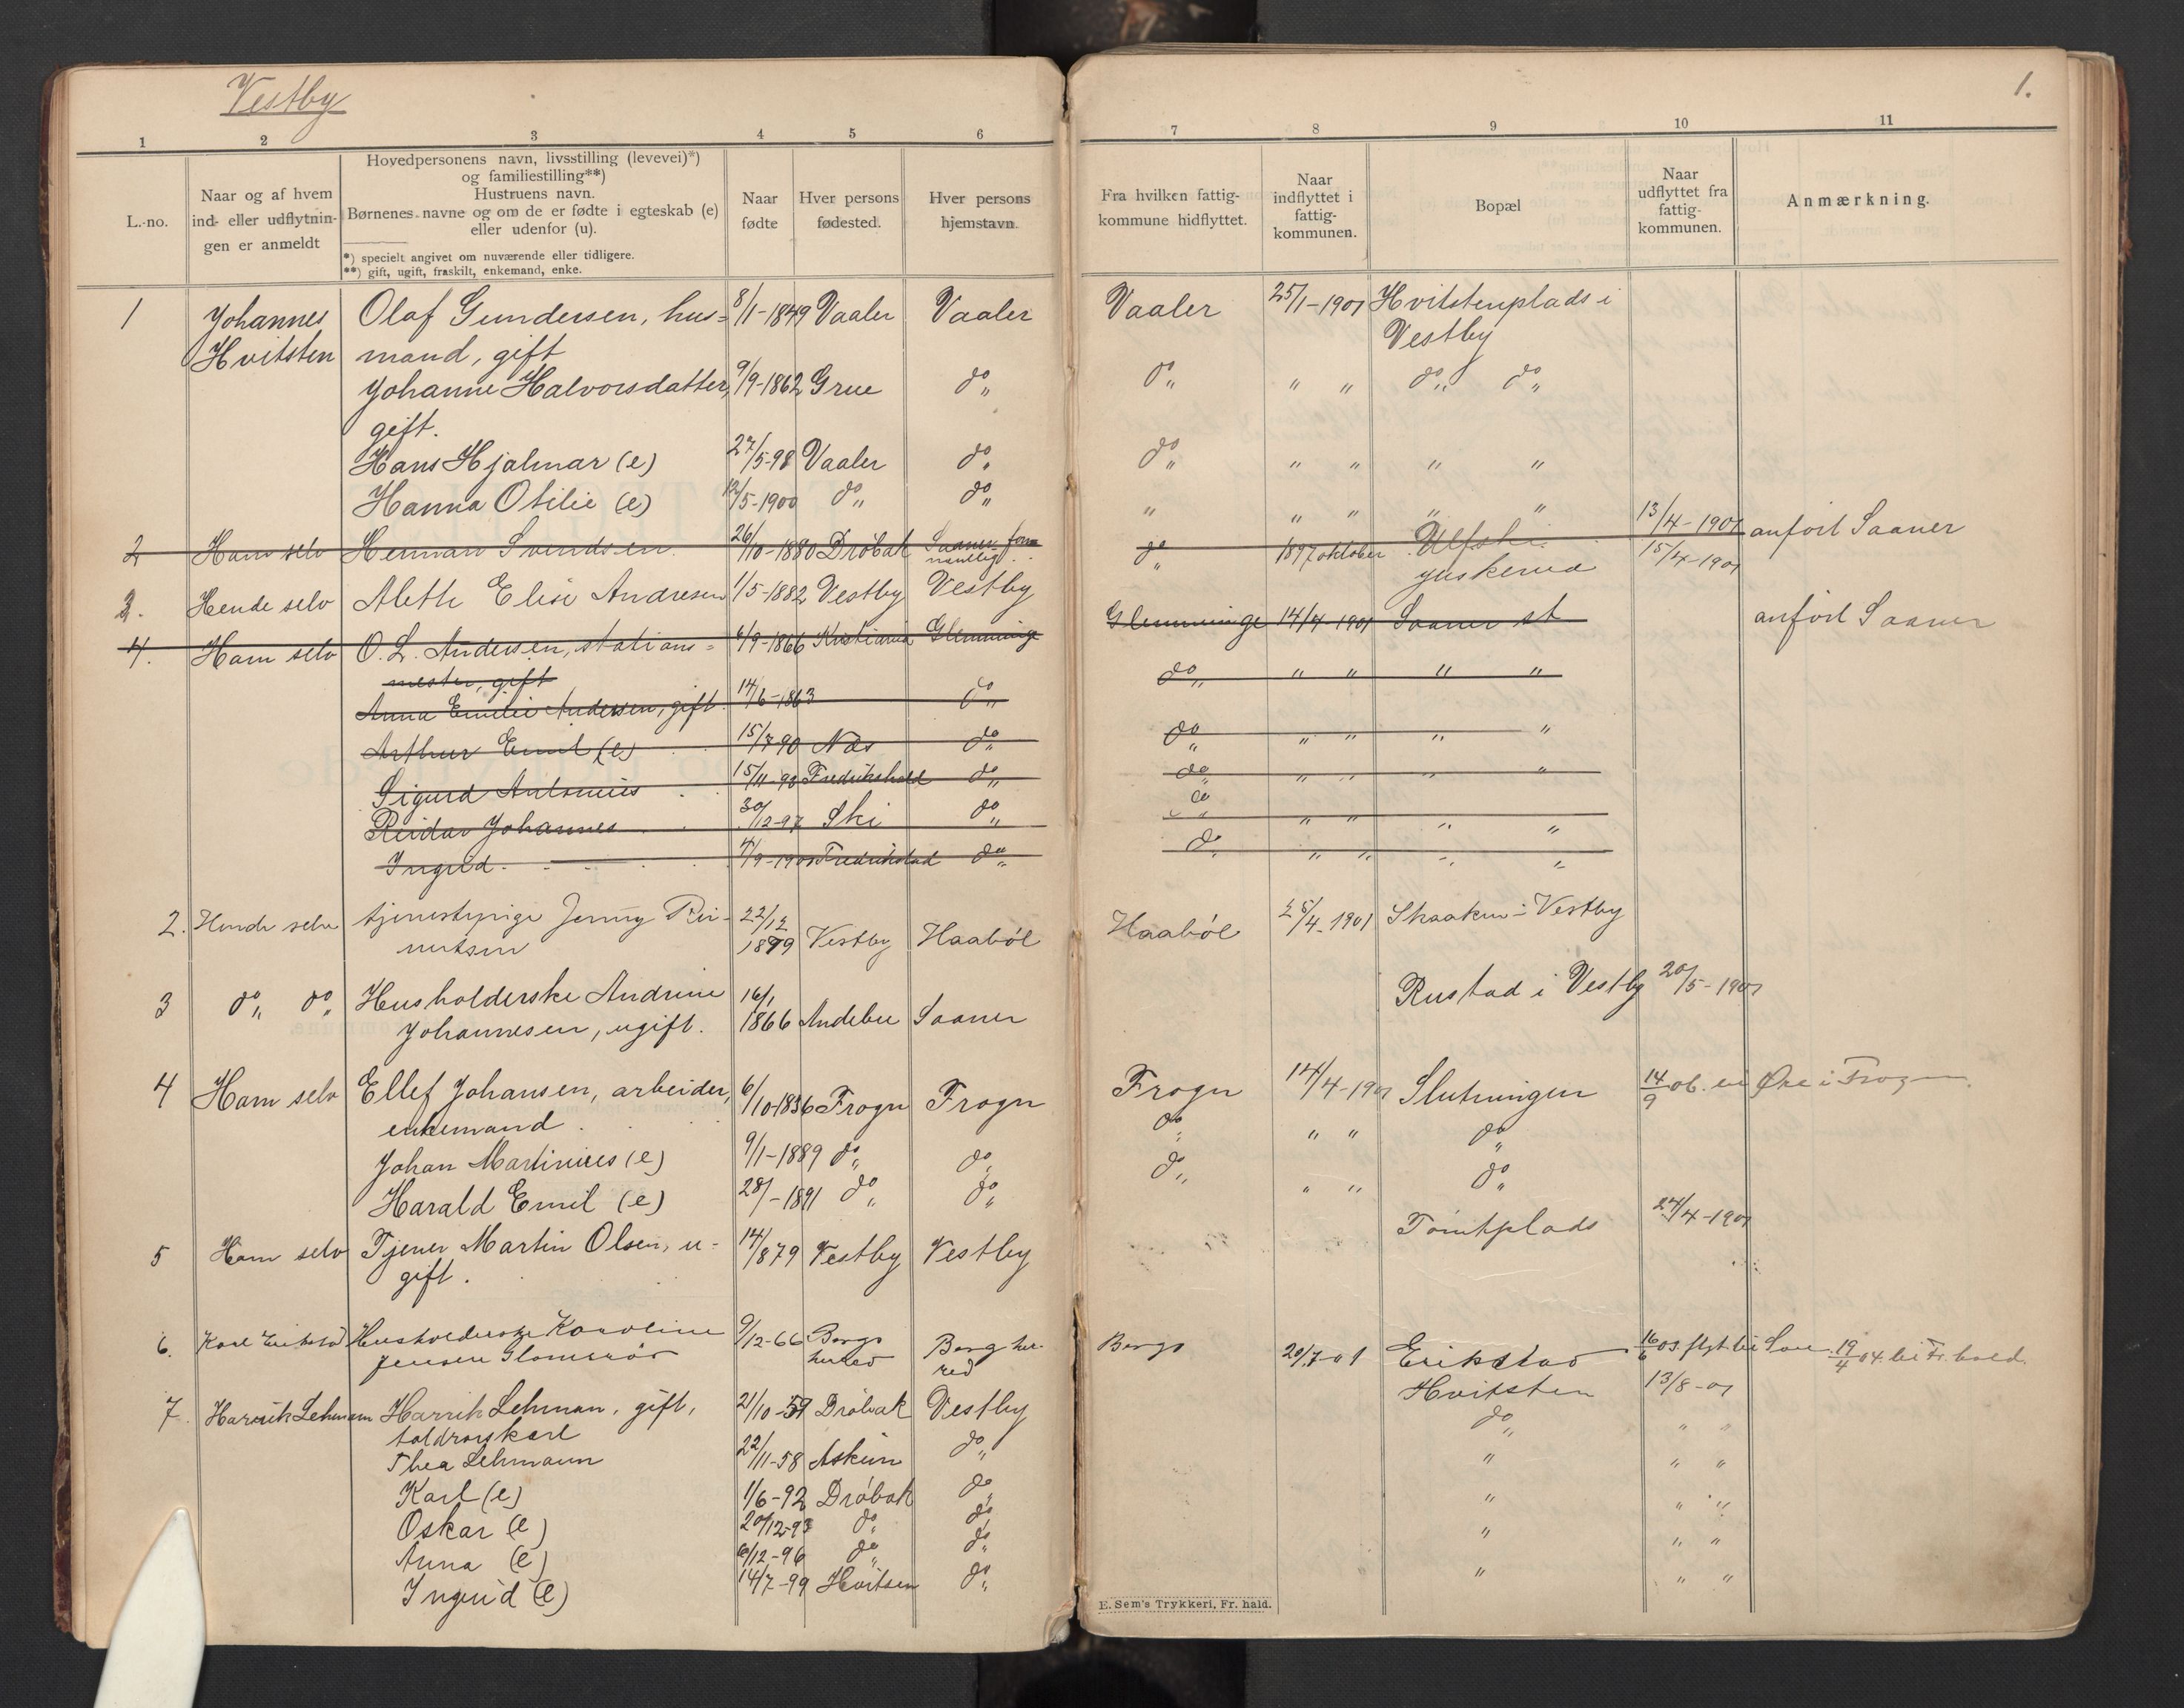 Vestby
1.
1 2 3 4 5 6 7 8 9 10 11
L.-no.
Naar og af hvem
ind- eller udflytnin-
gen er anmeldt
Hovedpersonens navn, livsstilling (levevei)*)
og familiestilling**)
Hustruens navn.
Børnenes navne og om de er fødte i egteskab (e)
eller udenfor (u).
*) specielt angivet om nuværende eller tidligere.
**) gift, ugift, fraskilt, enkemand, enke.
Naar
fødte
Hver persons
fødested.
Hver persons
hjemstavn.
Fra hvilken fattig-
kommune hidflyttet.
Naar
indflyttet i
fattig-
kommunen.
Bopæl
Naar
udflyttet fra
fattig-
kommunen.
Anmærkning.
1 Johannes Olaf Gundersen, hus= 8/1-1849 Vaaler Vaaler Vaaler 25/1-1901 Hvitstenplads i
Hvitsten mand, gift Vestby
Johanne Halvorsdatter, 9/9-1862 Grue do do " " do do
gift.
Hans Hjalmar (e) 27/5-98 Vaaler do do " " " "
Hanna Otilie (e) 12/5-1900 do do " " " " "
2 Ham selv Herman Svendsen. 26/10-1880 Drøbak Saaner do 1897 oktober 13/4-1901 anført Saaner
15/4-1901
3. Hende selv Alette Elise Andresen 1/5-1882 Vestby Vestby
4. Ham selv O. L. Andersen, stations= 6/9-1866 Kristiania Glemminge Glemminge 14/4-1901 Saaner st anført Saaner
mester, gift
Anna Emilie Andersen, gift. 14/6-1863 do do " " " "
Arthur Emil (e) 15/7 90 Næs do do " " " "
Sigurd Antonius 15/11-93 Fredrikshald do do " " " "
Reidar Johannes 30/12-97 Ski do do " " " "
Ingrid. 4/9-1900 Fredrikstad do do " " " "
2. Hende selv tjenestepige Jenny Rei- 22/12 Haabøl 25/4-1901 Skaaken i Vestby
nertsen 1879 Vestby Haabøl
3 do do Husholderske Andrine 16/1 Rustad i Vestby 20/5-1901
Johannesen, ugift. 1866 Andebu Saaner
4 Ham selv Ellef Johansen, arbeider, 6/10-1836 Frogn Frogn Frogn 14/4-1901 Slutningen 14/9 06. til Øre i Frogn.
enkemand. do " " do
Johan Martinius (e) 9/1-1889 do do do " " do
Harald Emil (e) 28/-1891 do do
5 Ham selv Tjener Martin Olsen, u= 14/879 Vestby Vestby Tomtplads 24/4-1901
gift.
6. Karl Erikstad Husholderske Karoline 9/12-66 Borge Borge her- Borge 20/7-01 Erikstad 16/6 03. flyt. til Son. 19/4 04. til Fr.hald.
Jensen Glomsrød herred red
7. Harrik Lehmann Harrik Lehman, gift, 21/10-59 Drøbak Vestby Hvitsten 13/8-01
toldrorskarl do " "
Thea Lehmann 22/11-58 Askim do " " "
Karl (e) 1/6-92 Drøbak do " " "
Oskar (e) 20/12-93 do do " " "
Anna (e) 6/12-96 do do " " "
Ingrid (e) 14/7-99 Hvitsen do
E. Sem's Trykkeri, Fr. hald.